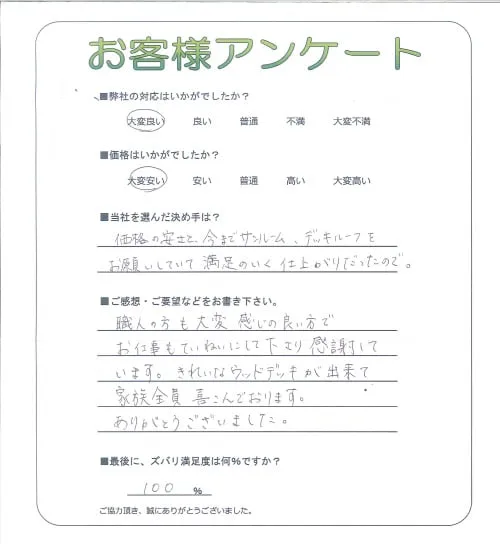 お客様アンケート
■弊社の対応はいかがでしたか？
大変良い 良い 普通 不満 大変不満
■価格はいかがでしたか？
大変安い 安い 普通 高い 大変高い
■当社を選んだ決め手は？
価格の安さと、今までサンルーム、デッキルーフを
お願いしていて満足のいく仕上がりだったので。
■ご感想・ご要望などをお書き下さい。
職人の方も大変感じの良い方で
お仕事もていねいにして下さり感謝して
います。きれいなウッドデッキが出来て
家族全員喜こんでおります。
ありがとうございました。
■最後に、ズバリ満足度は何％ですか？
100 ％
ご協力頂き、誠にありがとうございました。